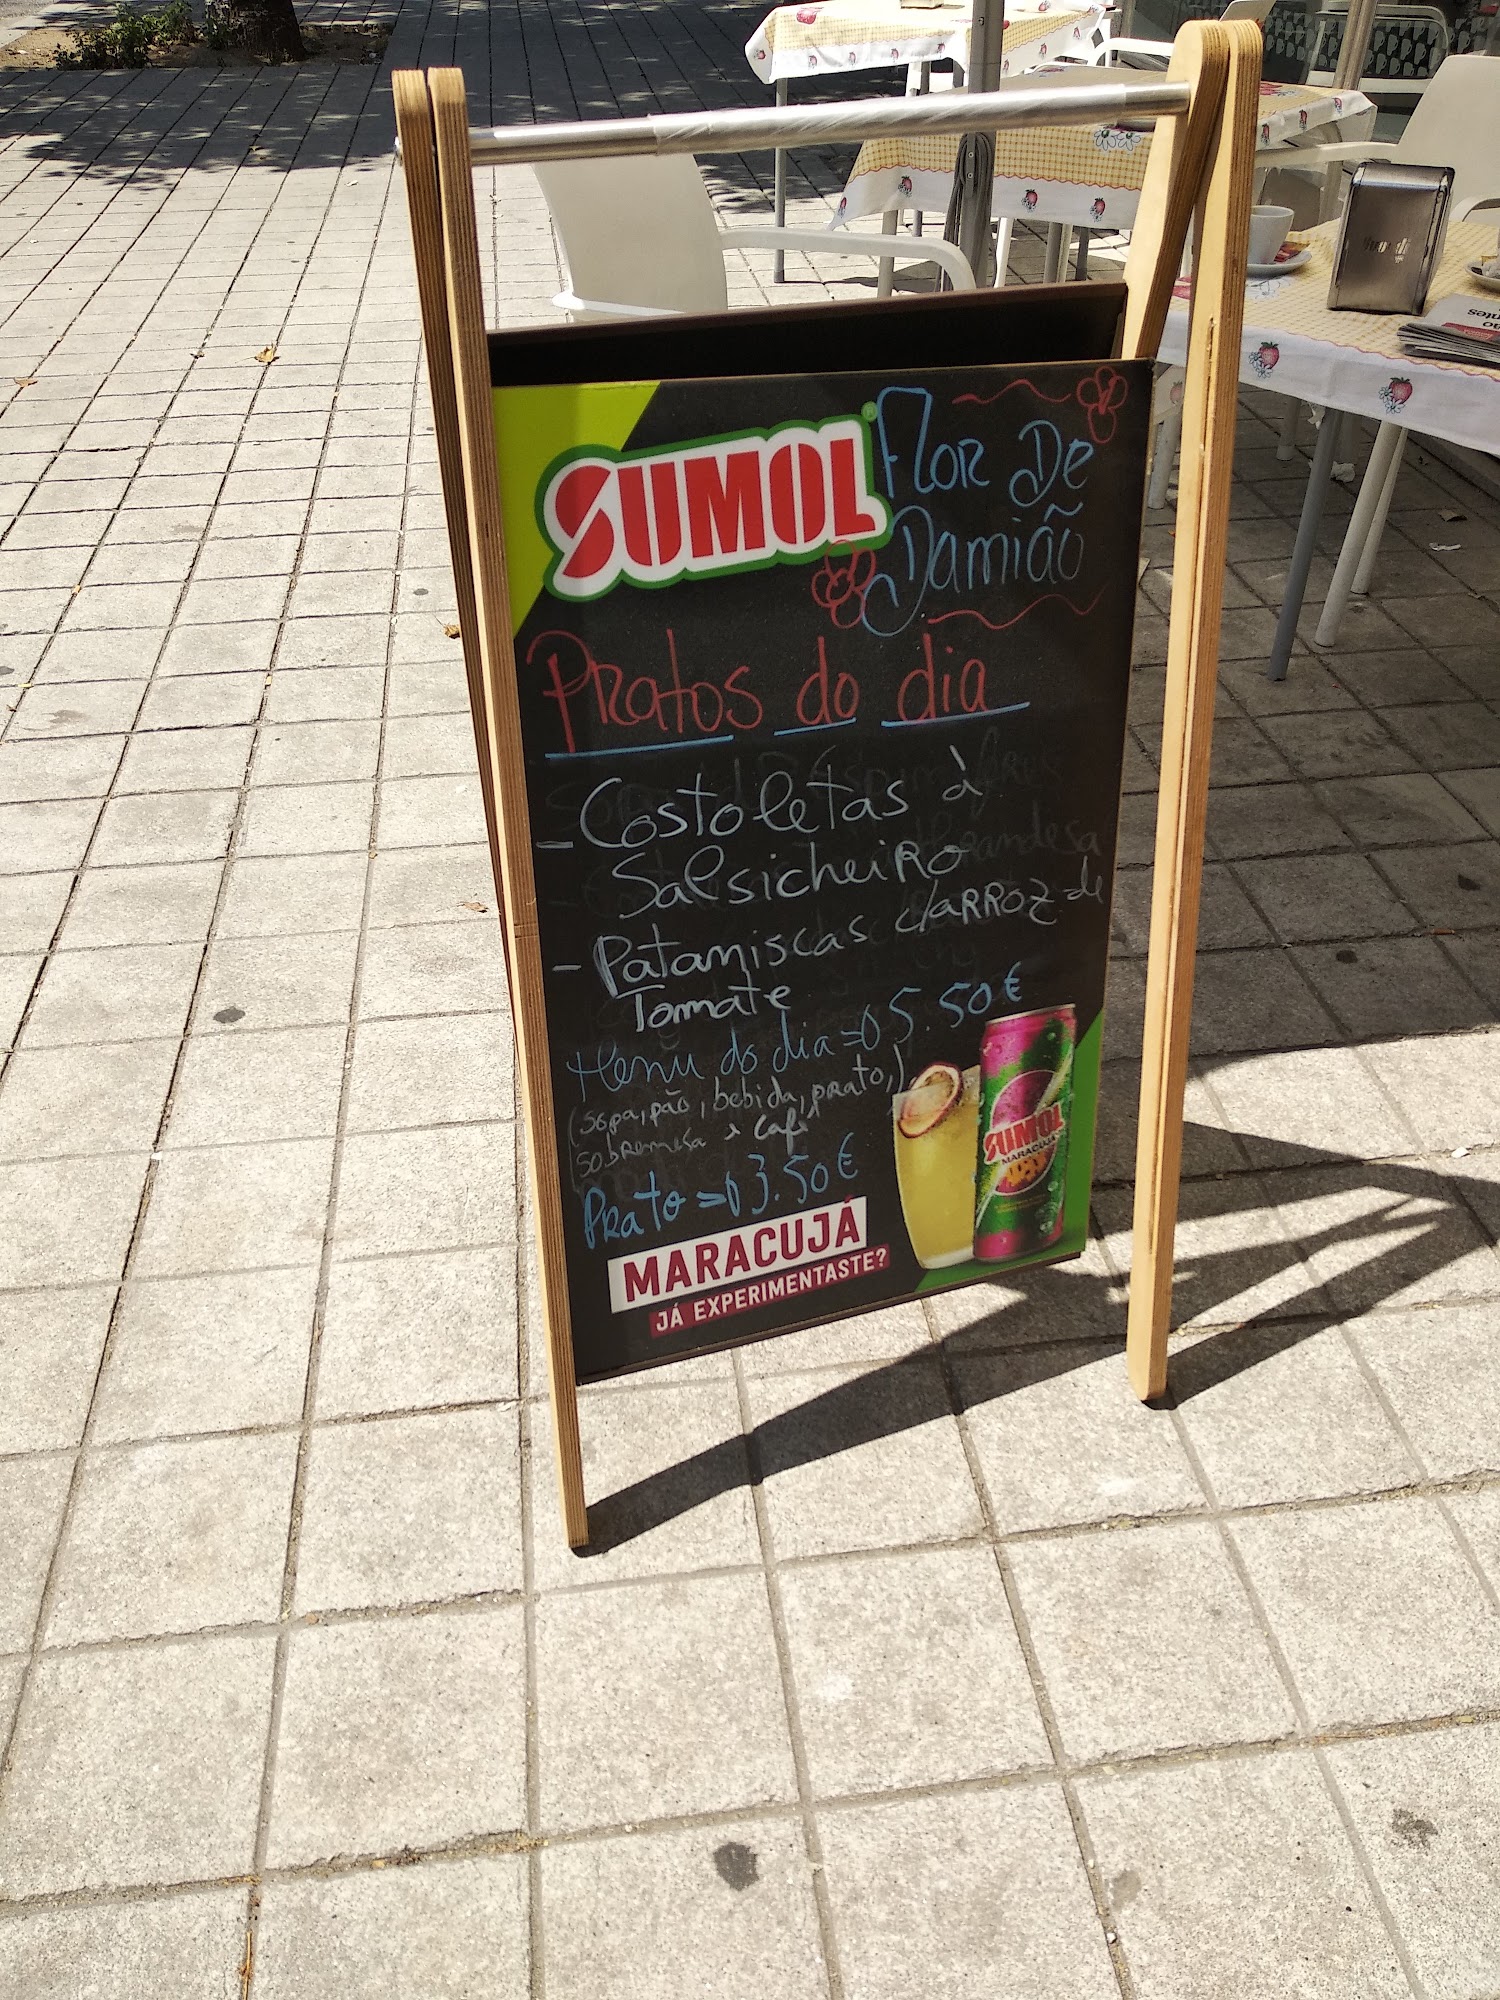 SUMOL
Flor De
Damião
Pratos do dia
- Costoletas à
Salsicheiro
- Pataniscas c/ arroz de
Tomate
Menu do dia => 5.50€
(sopa, pão, bebida, prato,)
sobremesa e Café
Prato => 3.50€
SUMOL
MARACUJÁ
MARACUJÁ
JÁ EXPERIMENTASTE?